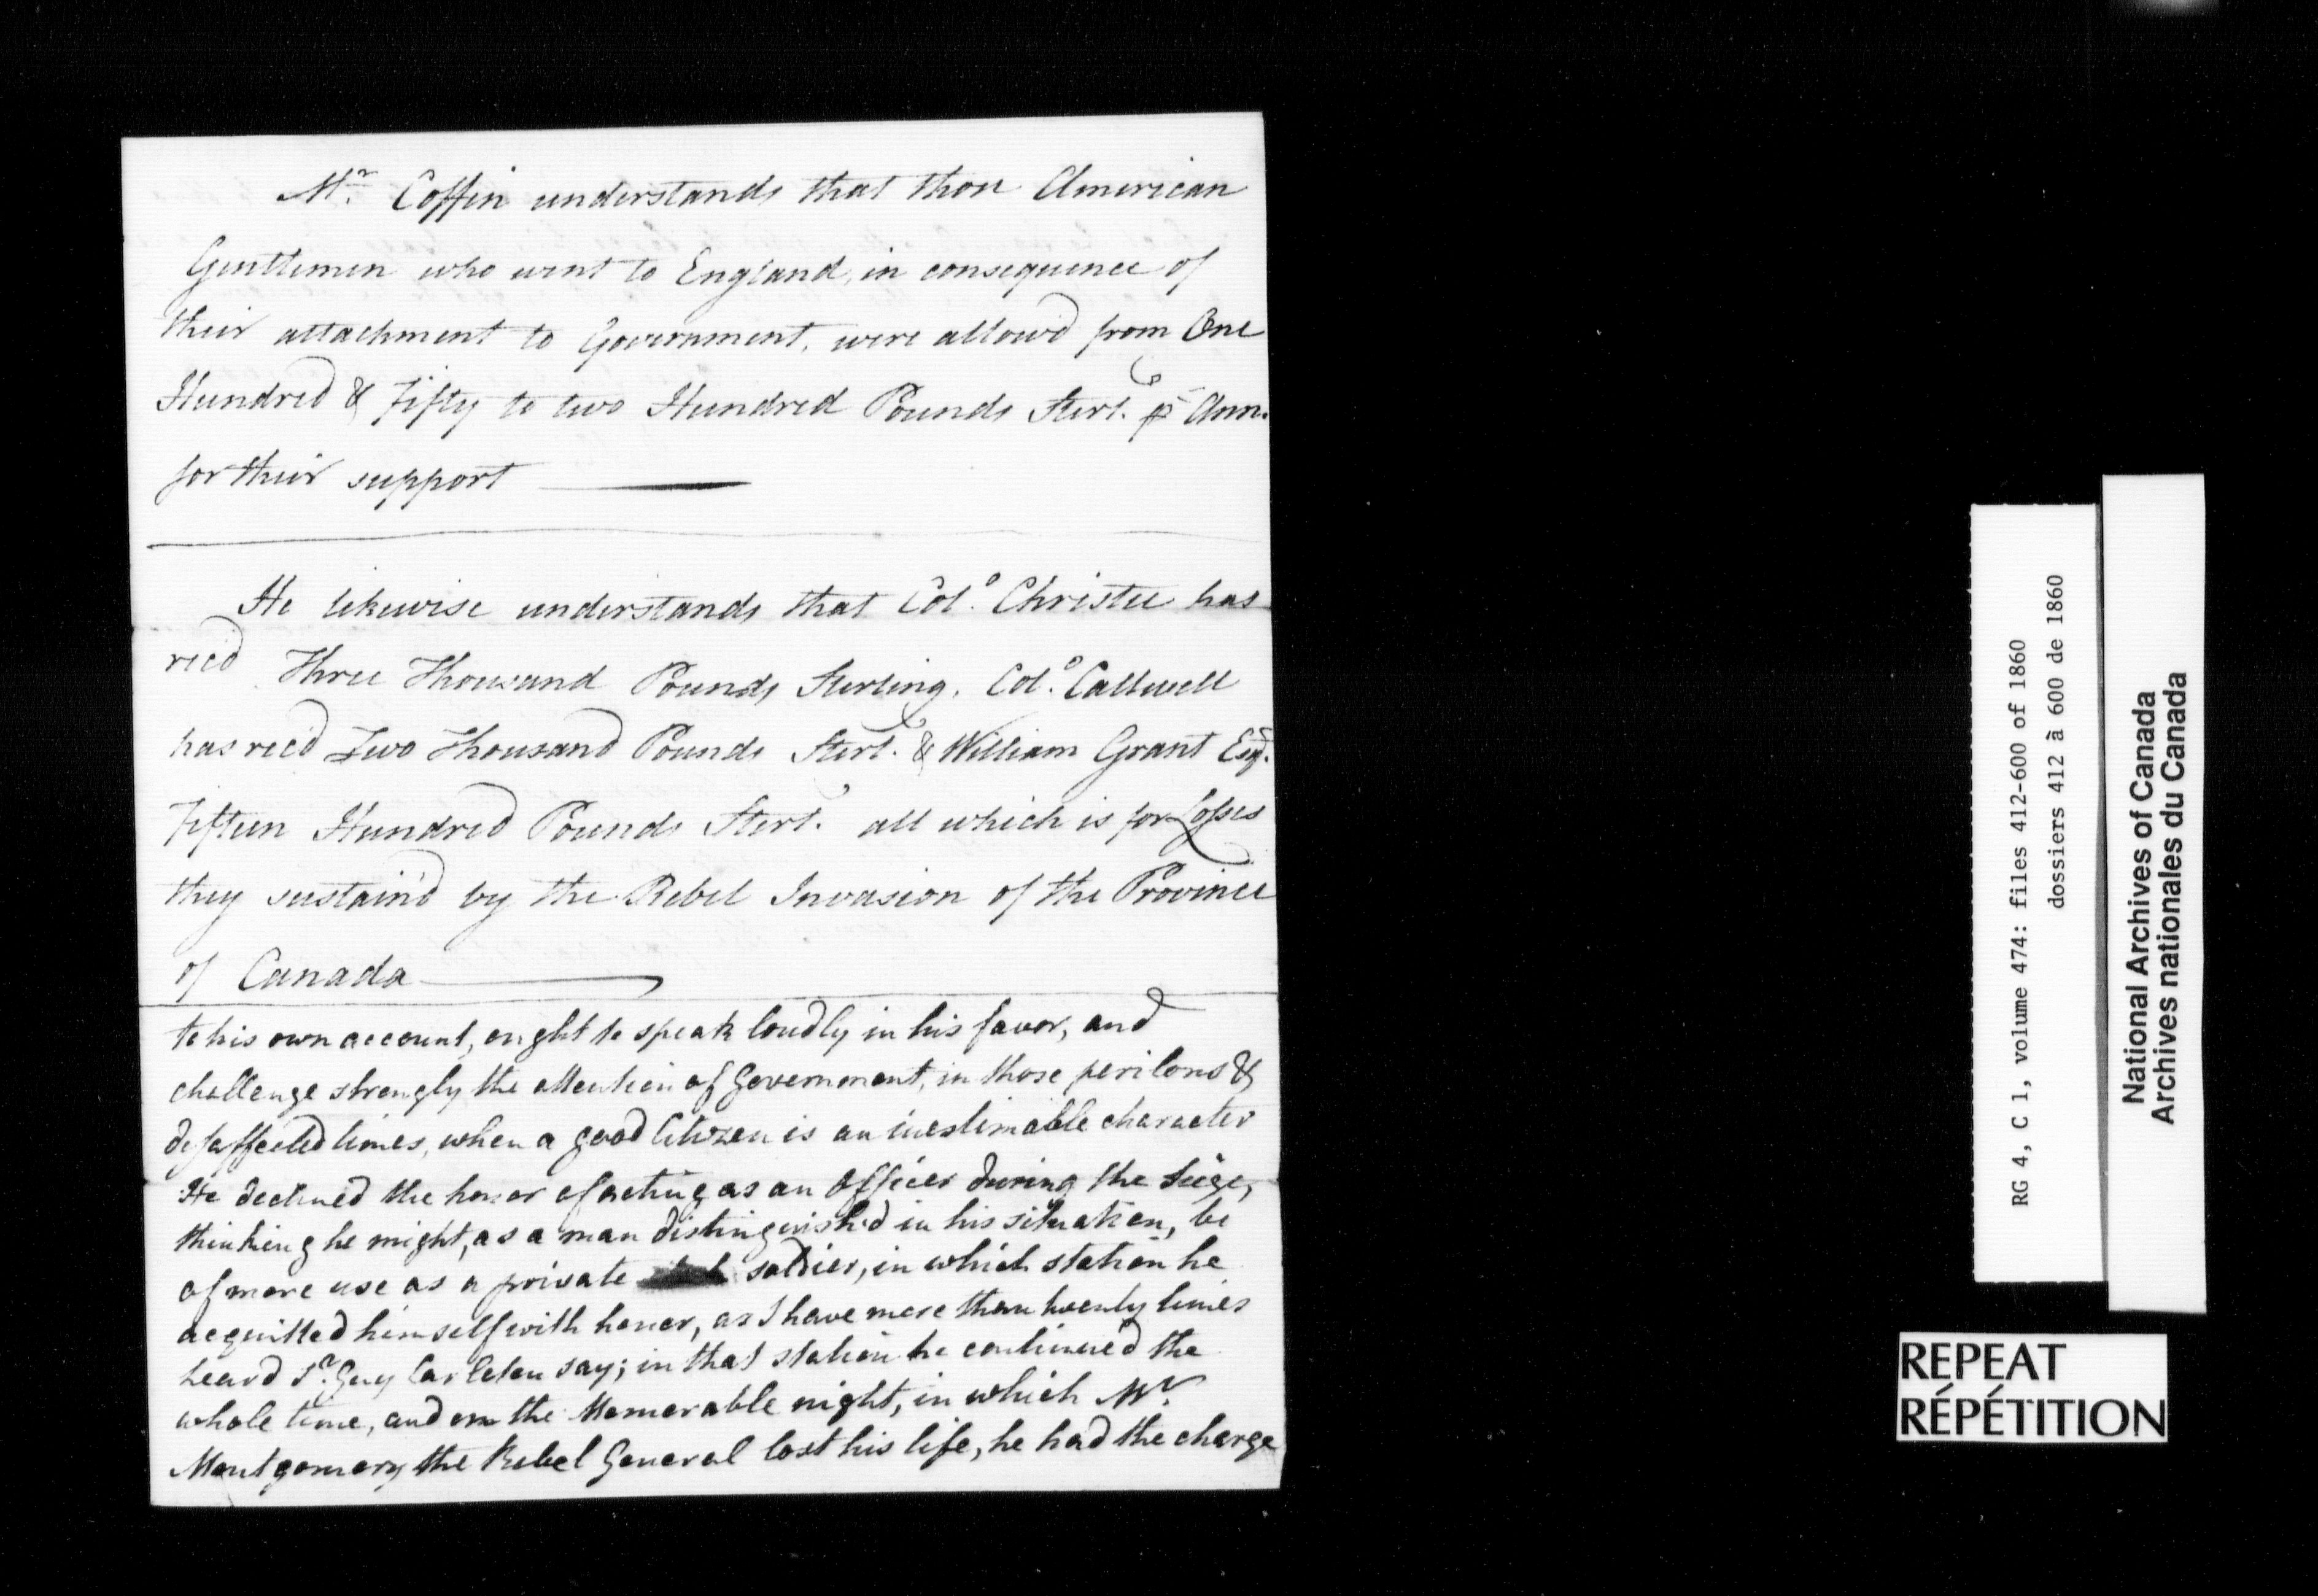 Mr. Coffin understands that those American
Gentlemen who went to England, in consequence of
their attachment to Government, were allow'd from One
Hundred & Fifty to two Hundred Pounds Sterl. pr Ann.
for their support
He likewise understands that Colo. Christie has
rec'd Three Thousand Pounds Sterling, Colo. Calldwell
has rec'd Two Thousand Pounds Sterl. & William Grant Esqr.
Fifteen Hundred Pounds Sterl. all which is for Losses
they sustain'd by the Rebel Invasion of the Province
of Canada
to his own account, ought to speak loudly in his favor, and
challenge strongly the attention of Government, in those perilous &
disaffected times, when a good Citizen is an inestimable character
He declined the honor of acting as an Officer during the Seige,
thinking he might, as a man distinguished in his situation, be
of more use as a private soldier, in which station he
acquitted himself with honor, as I have more than twenty times
heard Sr. Guy Carleton say; in that station he continued the
whole time, and on the Memorable night, in which Mr.
Montgomery the Rebel General lost his life, he had the charge
RG 4, C 1, volume 474: files 412-600 of 1860
dossiers 412 à 600 de 1860
National Archives of Canada
Archives nationales du Canada
REPEAT
RÉPÉTITION